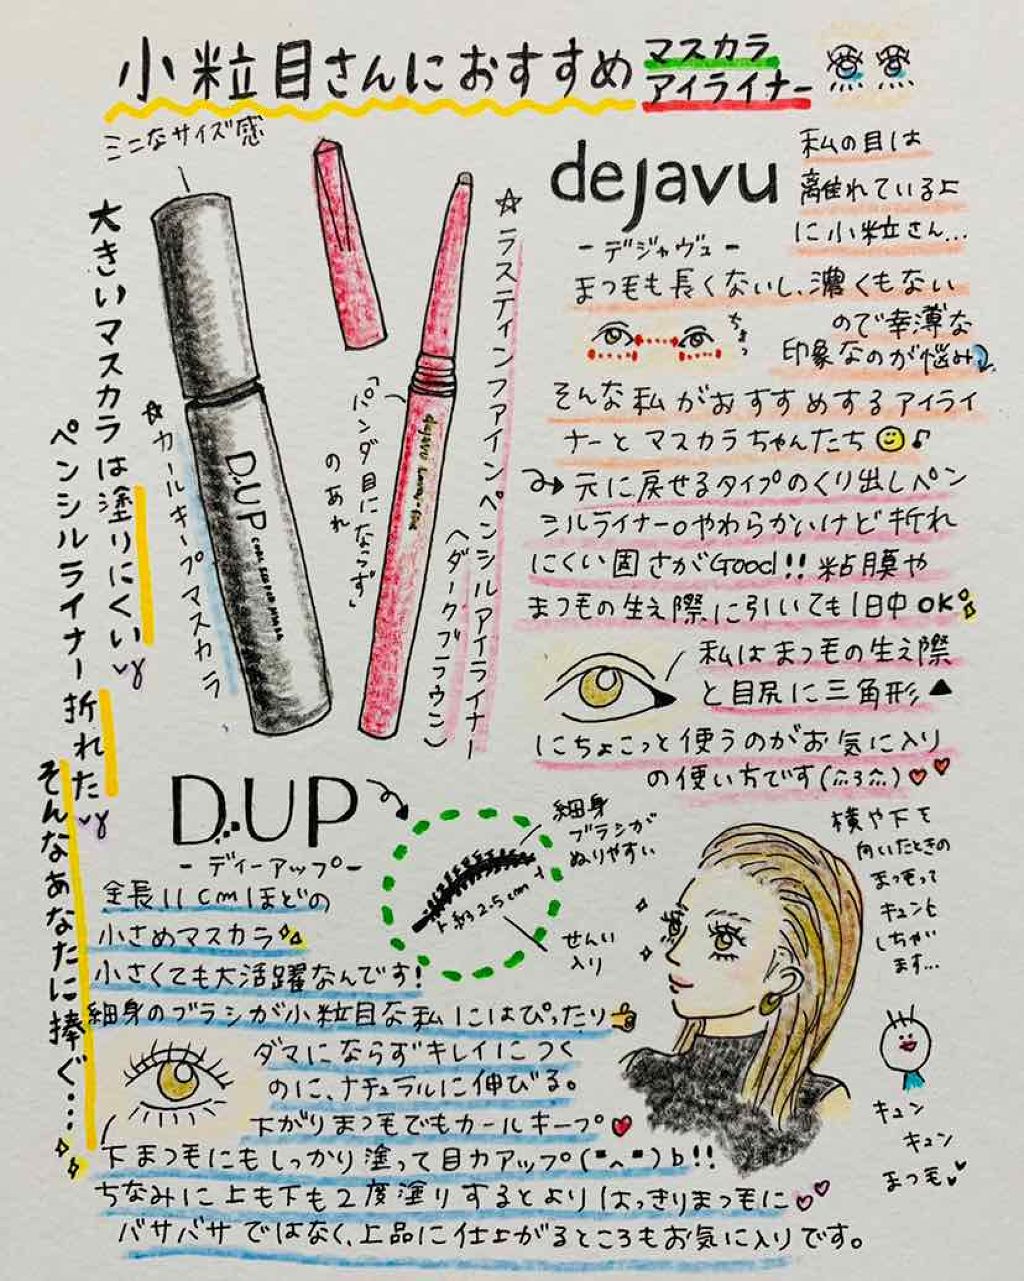 小粒目さんにおすすめ
マスカラ
アイライナー
ミニなサイズ感
大きいマスカラは塗りにくい
ペンシルライナー折れた
そんなあなたに捧ぐ…
☆カールキープマスカラ
D.UP
「パンダ目にならず」
のあれ
☆ラスティンファインペンシルアイライナー
(ダークブラウン)
dejavu
ーデジャヴュー
私の目は
離れている上
に小粒さん…
まつ毛も長くないし、濃くもない
ので幸薄な
印象なのが悩み
ちょっ
そんな私がおすすめするアイライ
ナーとマスカラちゃんたち
元に戻せるタイプのくり出しペン
シルライナー。やわらかいけど折れ
にくい固さがGood!!粘膜や
まつ毛の生え際に引いても1日中OK
私はまつ毛の生え際
と目尻に三角形▲
にちょこっと使うのがお気に入り
の使い方です(ﾐ3ﾐ)♡♡
D.UP
ーディーアップー
全長11cmほどの
小さめマスカラ
小さくても大活躍なんです!
細身のブラシが小粒目な私にはぴったり
細身
ブラシが
ぬりやすい
約2.5cm
せんい
入り
ダマにならずキレイにつく
のに、ナチュラルに伸びる。
下がりまつ毛でもカールキープ♥
下まつ毛にもしっかり塗って目力アップ(•̀^•́)b!!
ちなみに上も下も2度塗りするとよりはっきりまつ毛に♡♡
バサバサではなく、上品に仕上がるところもお気に入りです。
横や下を
向いたときの
まつ毛って
キュンと
しちゃい
ます…
キュン
キュン
まつ毛♥